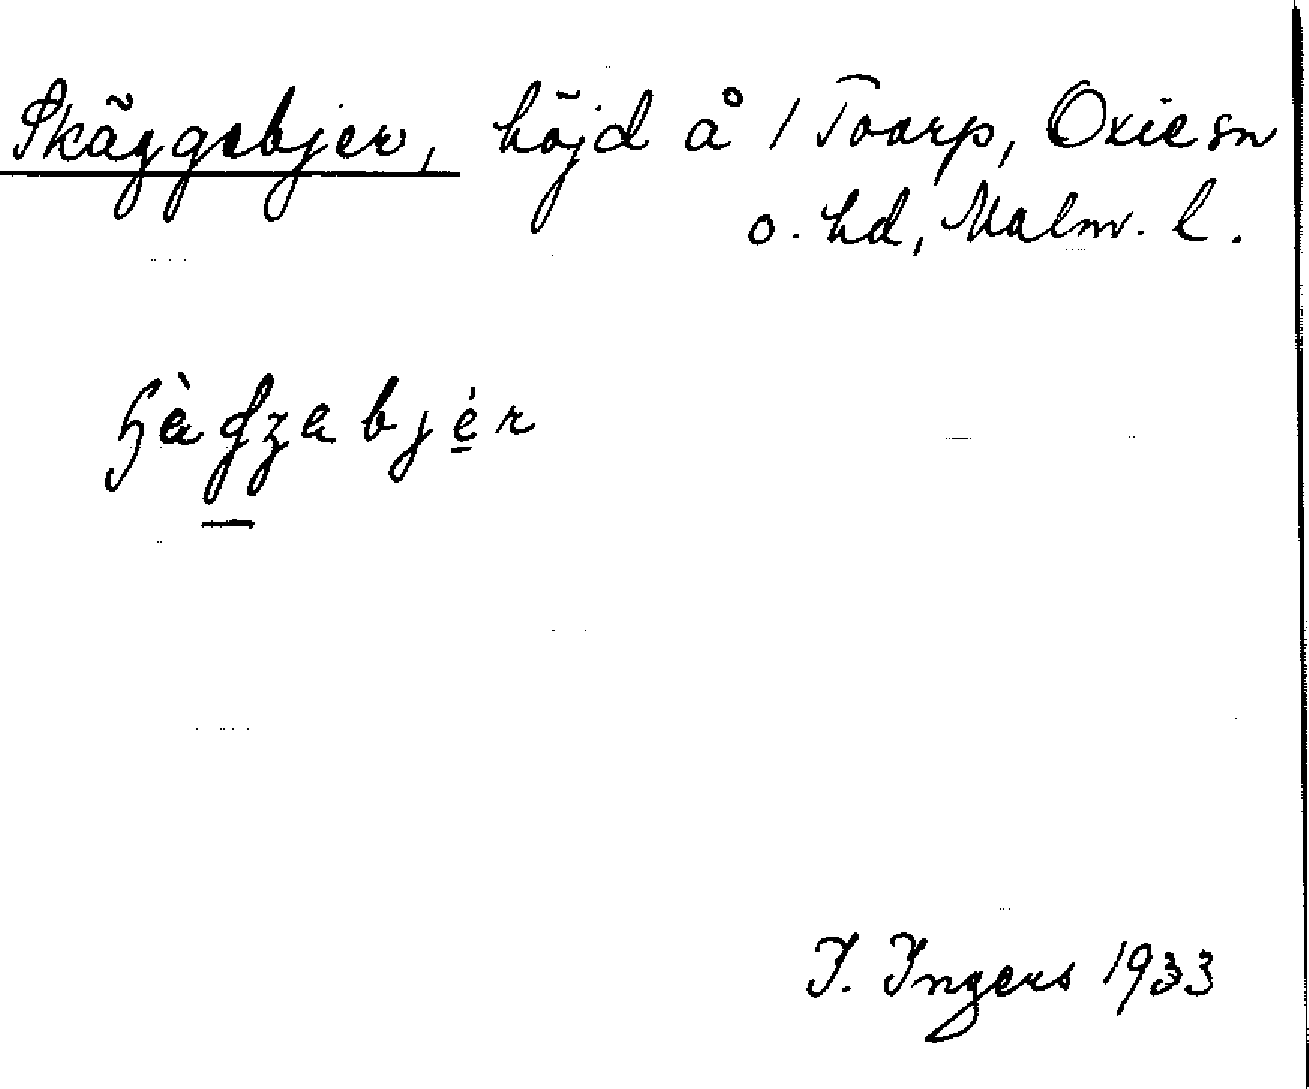 Skäggebjer, höjd å 1 Toarp, Oxie sn
o. hd, Malm. l.
I. Ingers 1933